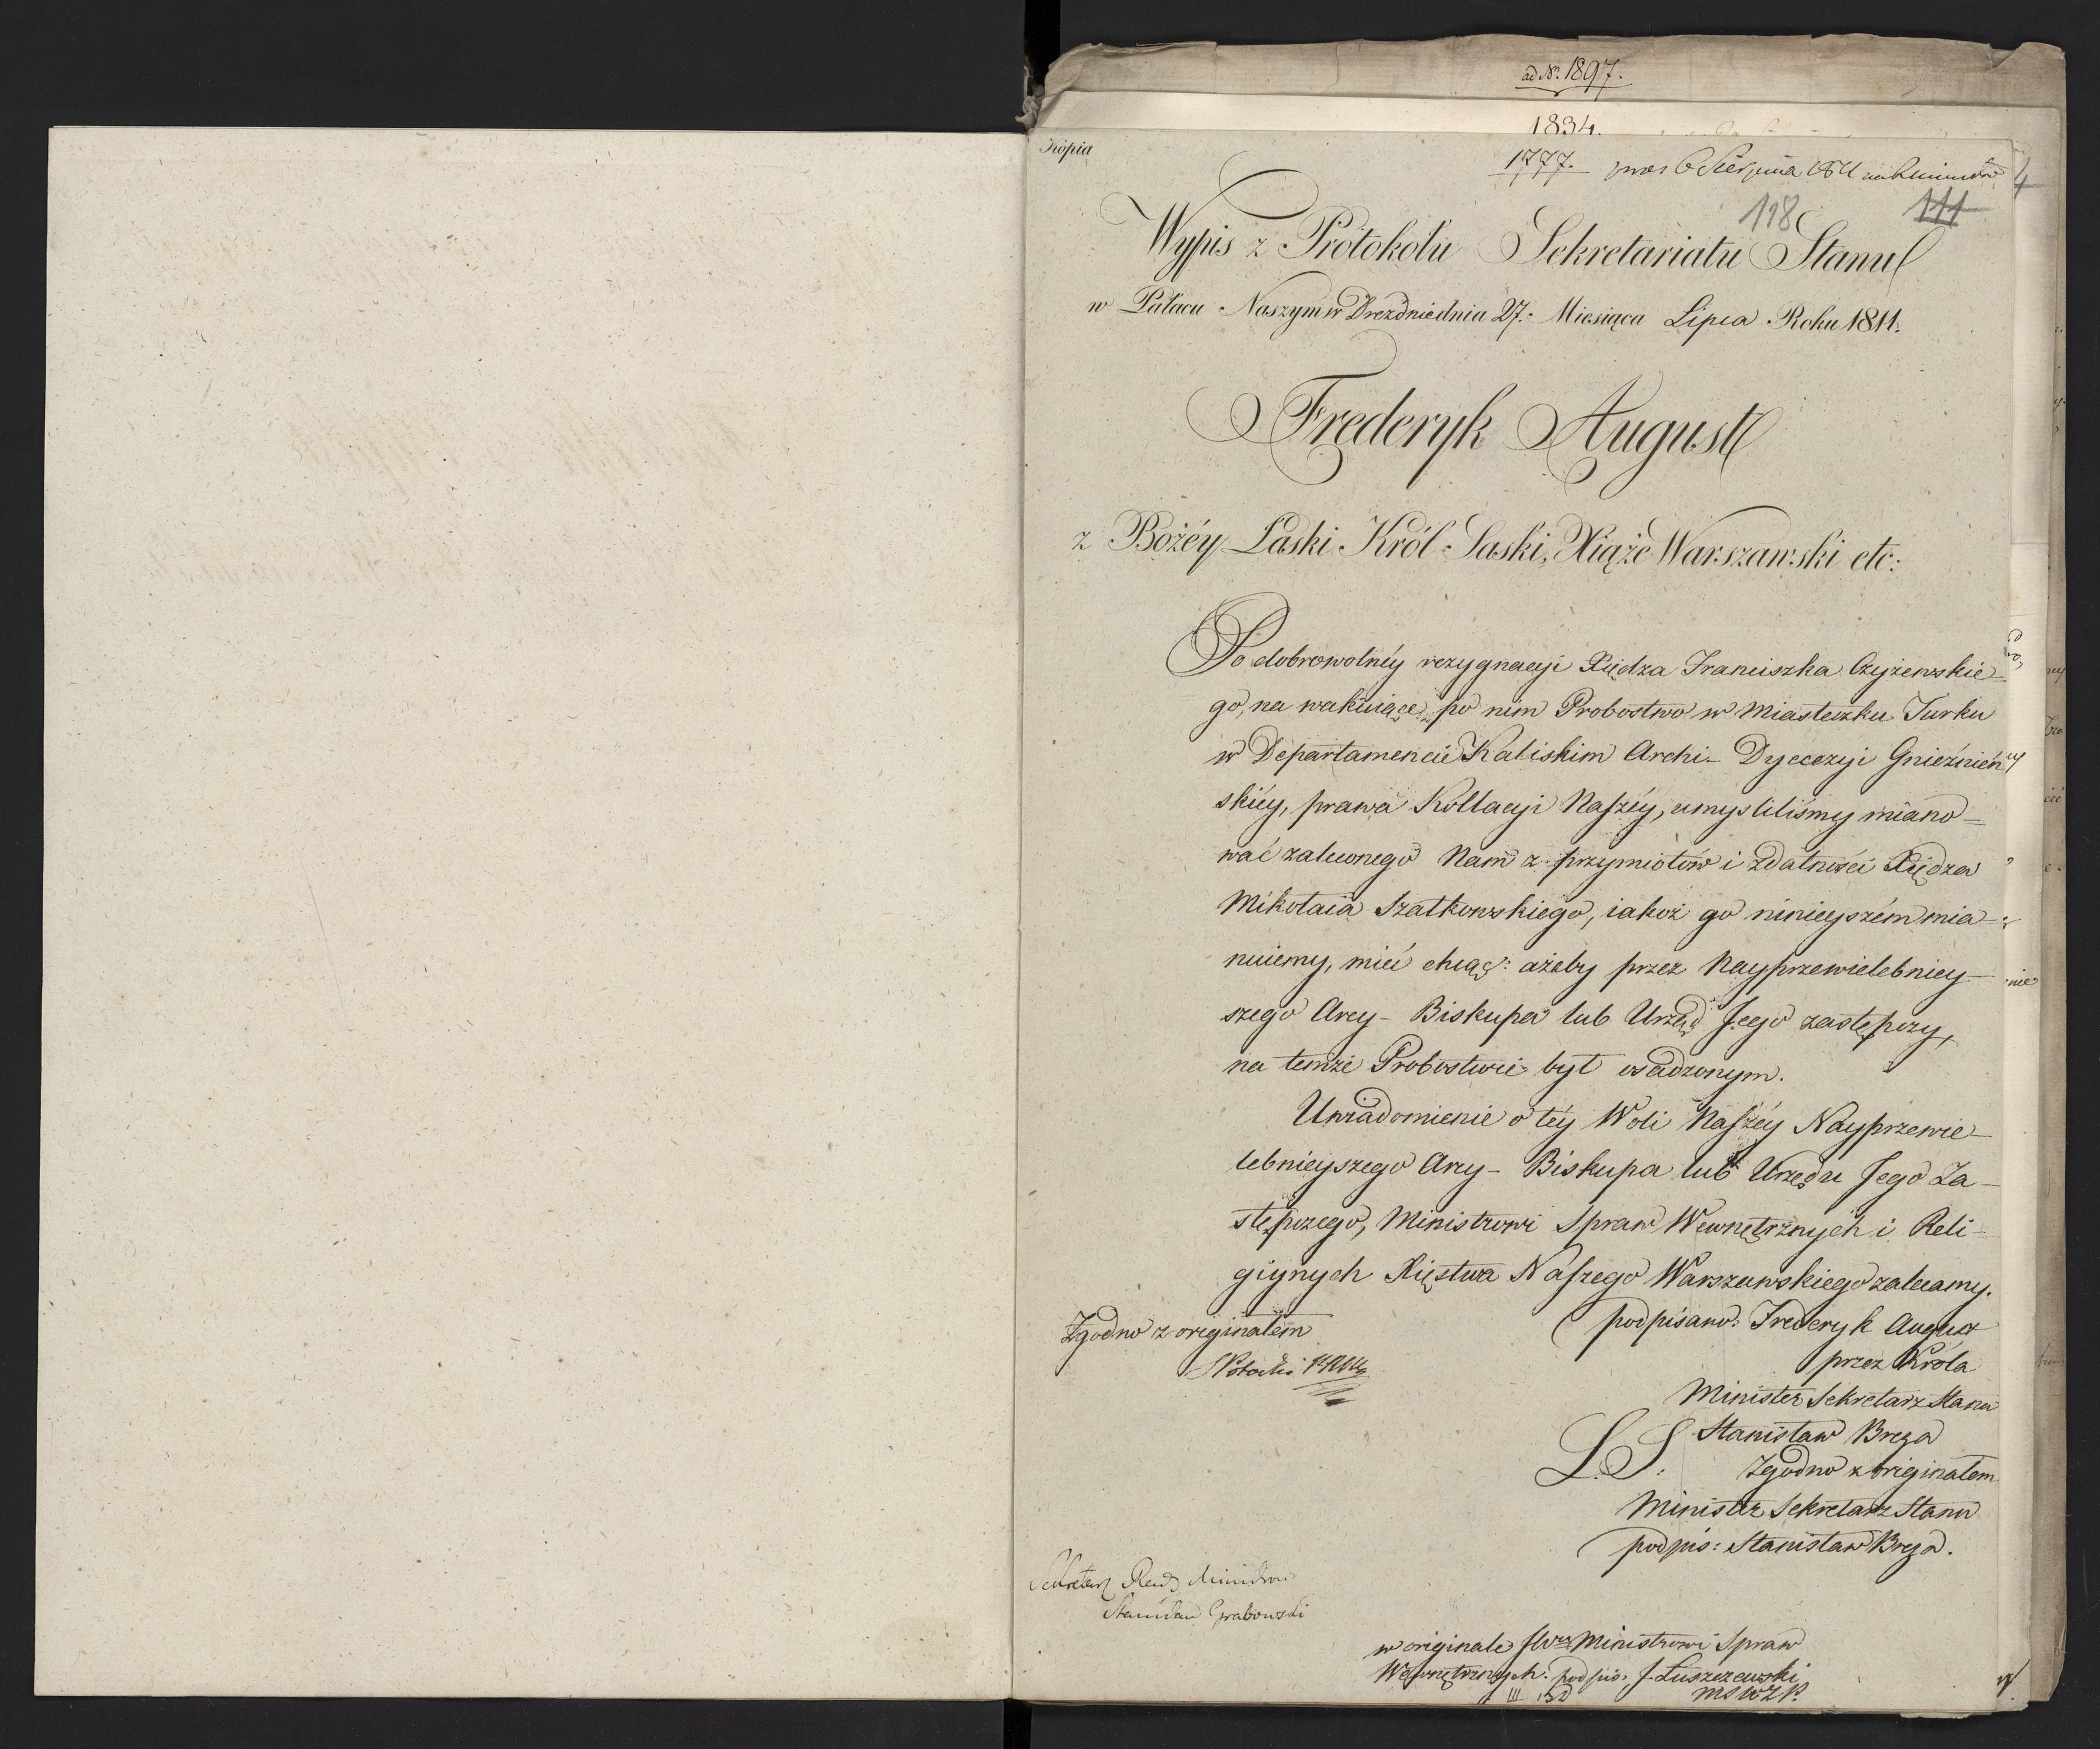 ad N. 1897.
1834.
Kopia
1777. prez 6 Sierpnia 1811
4
118 111
Wypis z Protokołu Sekretariatu Stanu
w Pałacu Naszym w Dreźnie dnia 27. Miesiąca Lipca Roku 1811.
Frederyk August
z Bożéy Łaski Król Saski, Xiąże Warszawski etc:
Po dobrowolnéy rezygnacyi Xiędza Franciszka Czyżewskie-
go, na wakuiące po nim Probostwo w Miasteczku Turku
w Departamencie Kaliskim Archi-Dyecezyi Gnieźnień
skiéy, prawa Kollacyi Naszéy, umyśliliśmy miano-
wać zaleconego Nam z przymiotów i zdatności Xiędza
Mikołaia Szatkowskiego, iakoż go ninieyszém mia-
nuiemy, mieć chcąc: ażeby przez Nayprzewielebniey-
szego Arcy-Biskupa lub Urząd Jego zastępczy,
na temże Probostwie był osadzonym.
Uwiadomienie o téy Woli Naszéy Nayprzewie-
lebnieyszego Arcy-Biskupa lub Urzędu Jego Za-
stępczego, Ministrowi Spraw Wewnętrznych i Reli-
giynych Xięstwa Naszego Warszawskiego zalecamy.
Zgodno z originałem
podpisano: Frederyk August
przez Króla
Minister Sekretarz Stanu
L.S. Stanisław Breza
Zgodno z originałem
Minister Sekretarz Stanu
podpis: Stanisław Breza.
Sekretarz Rady Ministrów
Stanisław Grabowski
w originale Ministrowi Spraw
Wewnętrznych: podpis: J. Łuszczewski
MSWZP.